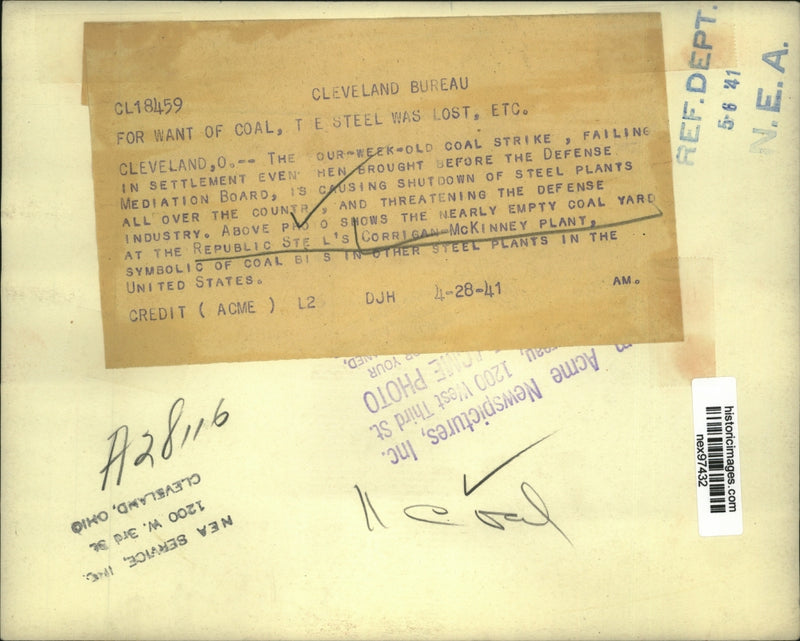 CLEVELAND BUREAU
CL18459
FOR WANT OF COAL, T E STEEL WAS LOST, ETC.
CLEVELAND,O.-- THE OUR-WEEK-OLD COAL STRIKE , FAILING
IN SETTLEMENT EVEN HEN BROUGHT BEFORE THE DEFENSE
MEDIATION BOARD, IS CAUSING SHUTDOWN OF STEEL PLANTS
ALL OVER THE COUNTR , AND THREATENING THE DEFENSE
INDUSTRY. ABOVE PHOTO SHOWS THE NEARLY EMPTY COAL YARD
AT THE REPUBLIC STE L'S CORRIGAN-MCKINNEY PLANT,
SYMBOLIC OF COAL BI S IN OTHER STEEL PLANTS IN THE
UNITED STATES.
CREDIT ( ACME ) L2 DJH 4-28-41 AM.
REF. DEPT.
5-6 '41
N. E. A.
Acme Newspictures, Inc.
1200 West Third St.
ACME PHOTO
OR YOUR
A28116
NEA SERVICE, INC.
1200 W. 3rd St.
CLEVELAND, OHIO
Coal
historicimages.com
nex97432